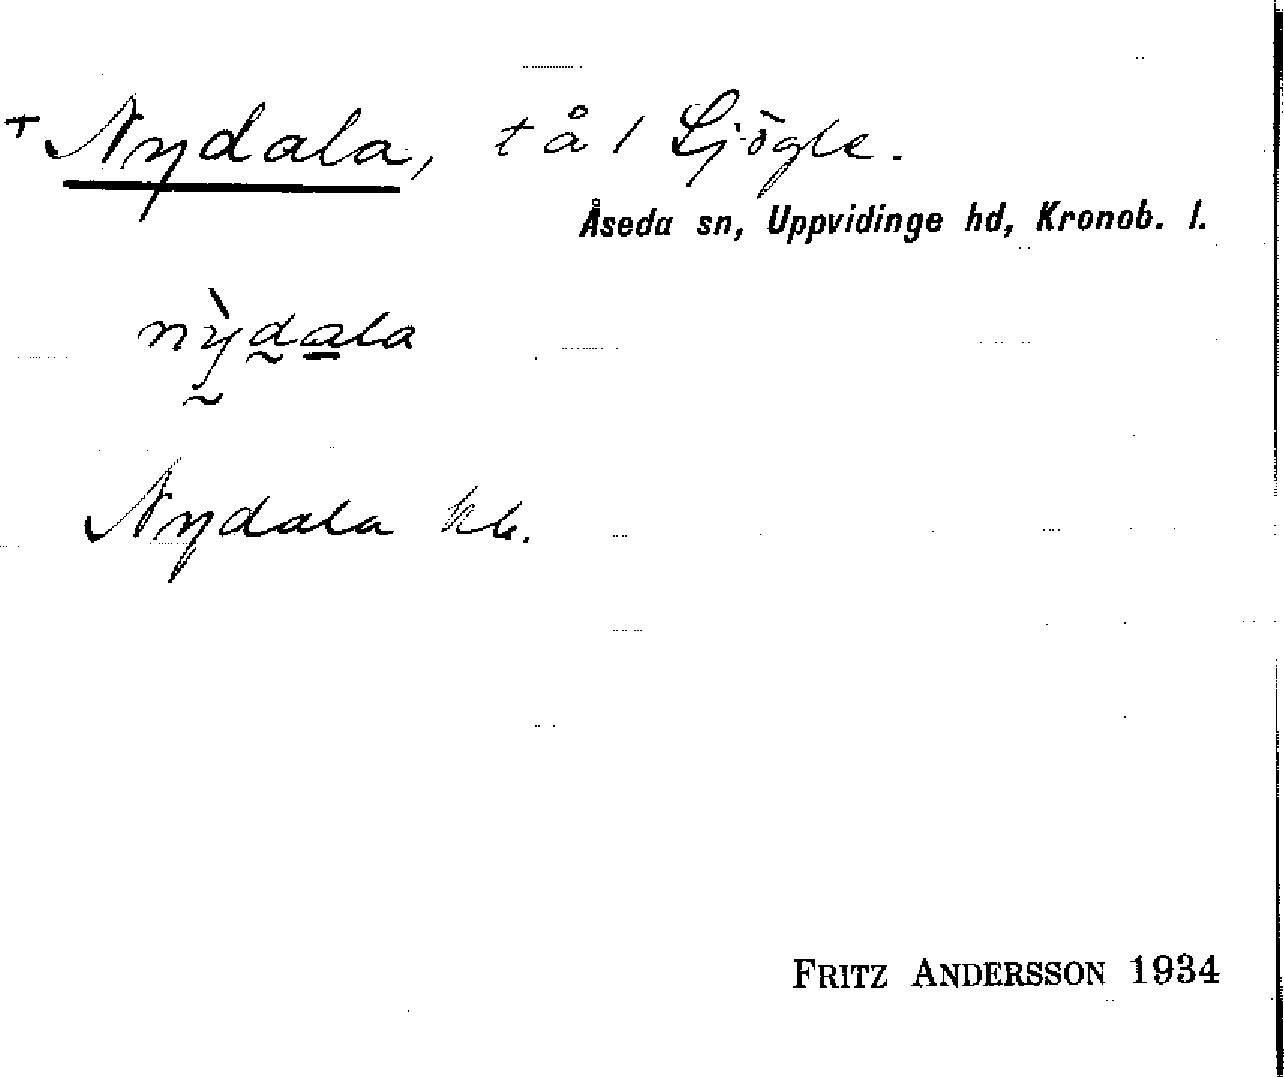 + Nydala, t å 1 Ljögle.
Åseda sn, Uppvidinge hd, Kronob. l.
nỳdala
Nydala kb.
FRITZ ANDERSSON 1934